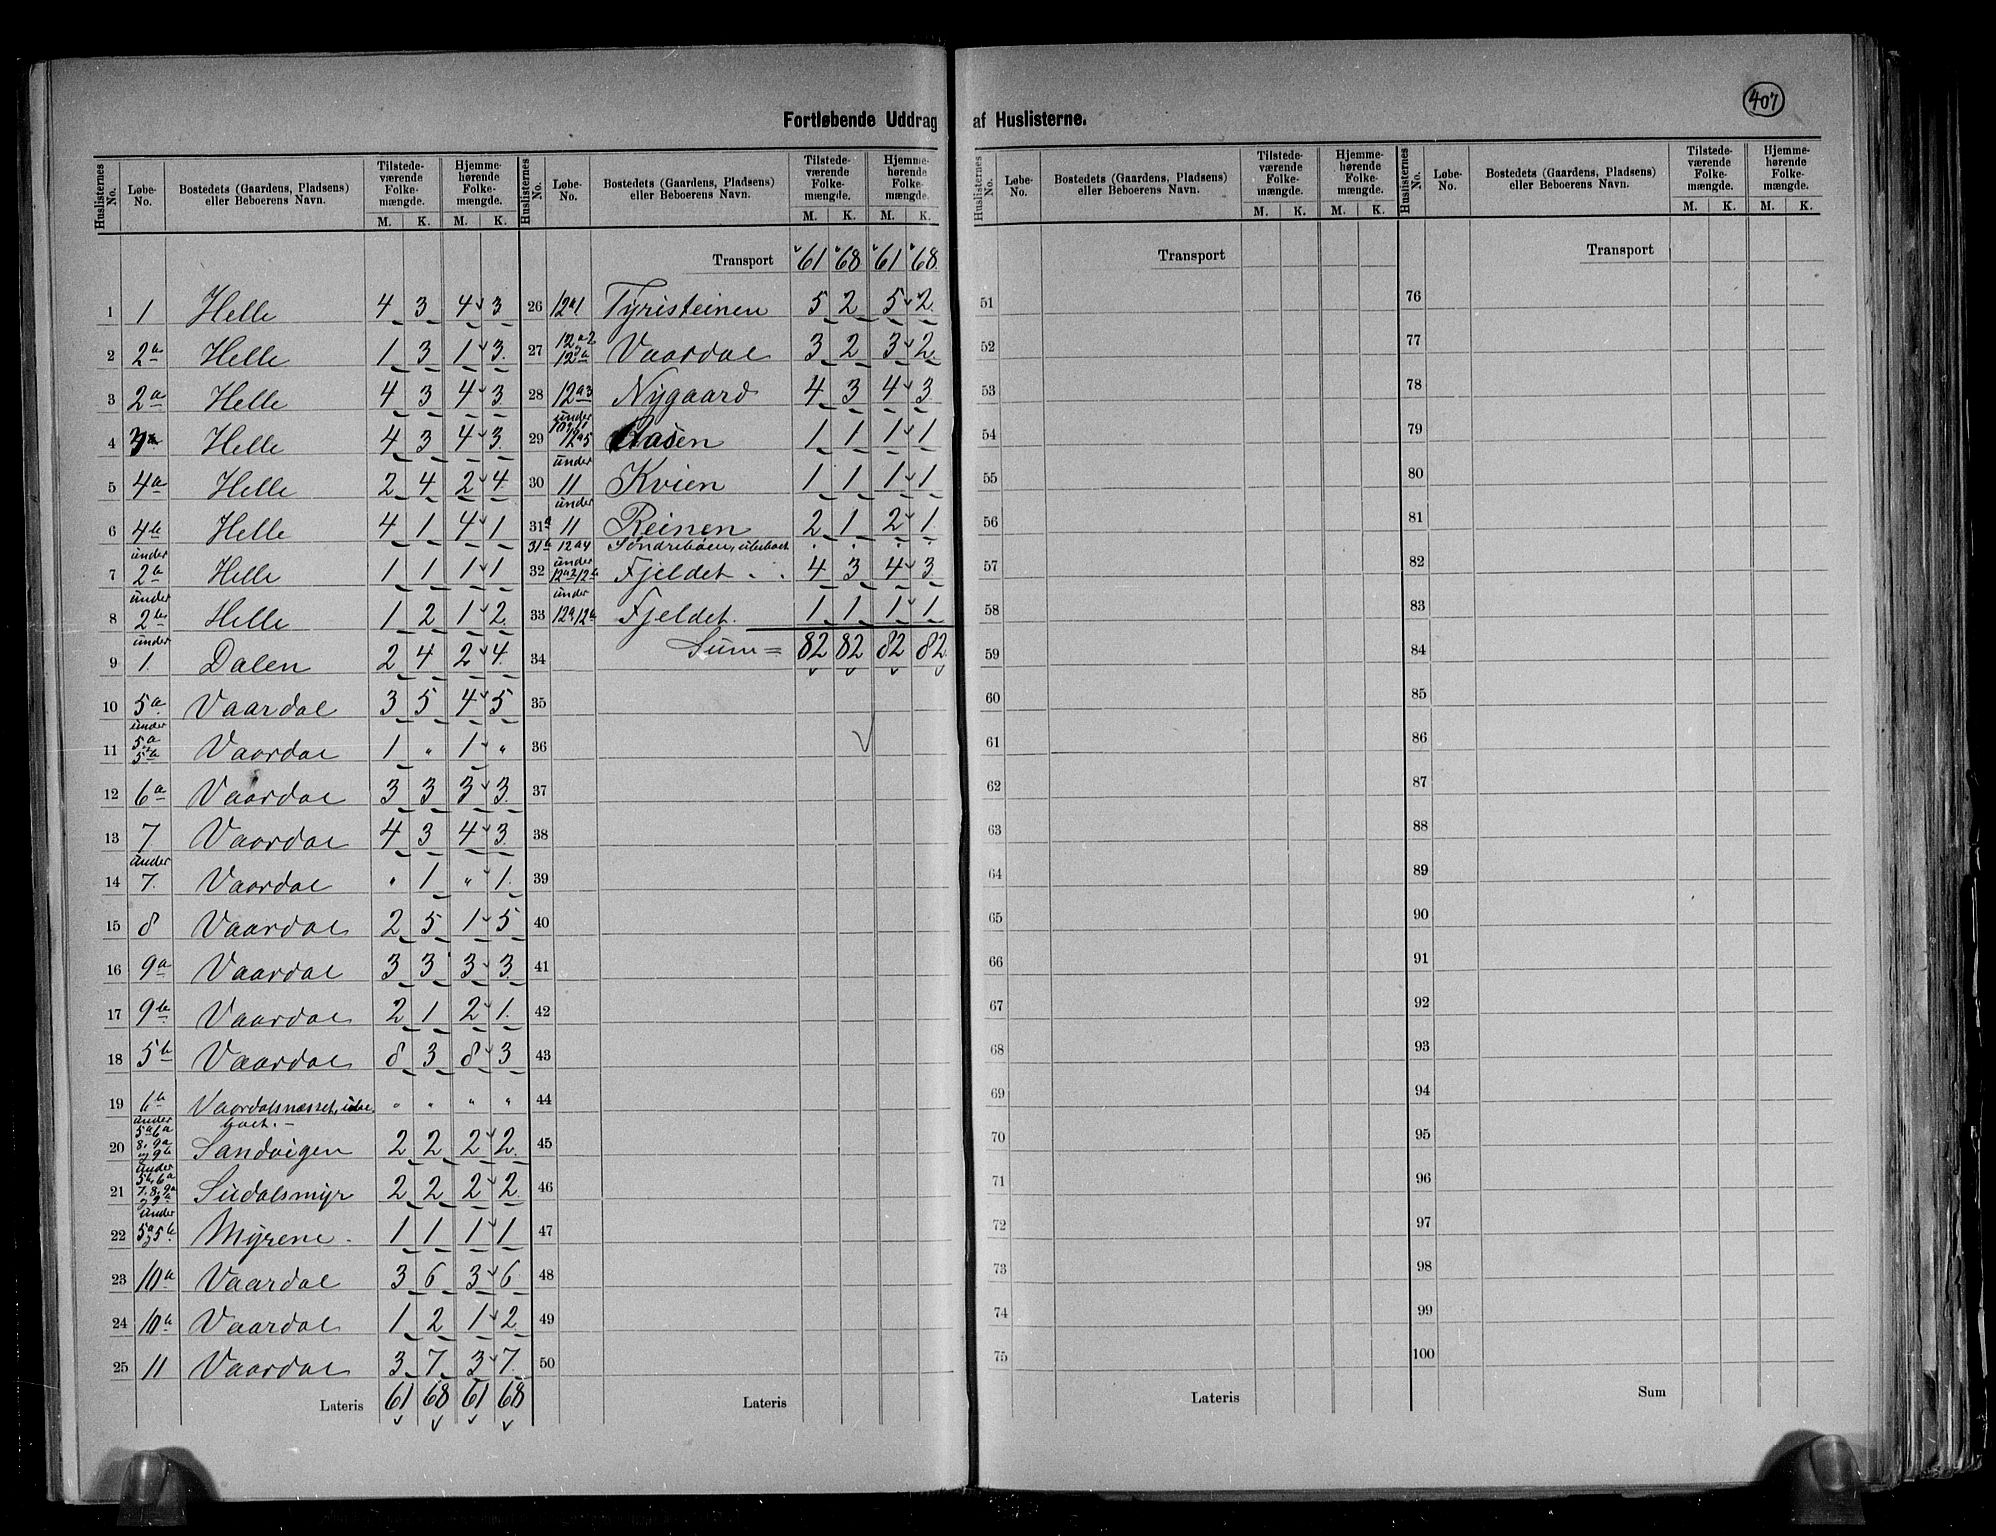 407
Fortløbende Uddrag af Huslisterne.
Huslisternes No. Løbe-No. Bostedets (Gaardens, Pladsens) eller Beboerens Navn. Tilstedeværende Folkemængde. M. K. Hjemmehørende Folkemængde. M. K.
1 1 Helle 4 3 4 3
2 2a Helle 1 3 1 3
3 2a Helle 4 3 4 3
4 3a Helle 4 3 4 3
5 4a Helle 2 4 2 4
6 4b Helle 4 1 4 1
7 under 2b Helle 1 1 1 1
8 under 2b Helle 1 2 1 2
9 under 1. Dalen 2 4 2 4
10 5a Vaardal 3 5 4 5
11 under 5a Vaardal 1 " 1 "
12 6a Vaardal 3 3 3 3
13 7 Vaardal 4 3 4 3
14 under 7. Vaardal " 1 " 1
15 8 Vaardal 2 5 1 5
16 9a Vaardal 3 3 3 3
17 9b Vaardal 2 1 2 1
18 5b Vaardal 8 3 8 3
19 6b Vaardalsnæsset, ubeboet. " " " "
20 under 5a 6a 8, 9a og 9b Sandvigen 2 2 2 2
21 under 5b, 6a 7, 8, 9a Sudalsmyr 2 2 2 2
22 under 5a og 5b Myrene 1 1 1 1
23 10a Vaardal 3 6 3 6
24 10b Vaardal 1 2 1 2
25 11 Vaardal 3 7 3 7
Lateris 61 68 61 68
Huslisternes No. Løbe-No. Bostedets (Gaardens, Pladsens) eller Beboerens Navn. Tilstedeværende Folkemængde. M. K. Hjemmehørende Folkemængde. M. K.
Transport 61 68 61 68
26 12a1 Tyristeinen 5 2 5 2
27 12a2 Vaardal 3 2 3 2
28 12a3 Nygaard 4 3 4 3
29 under 12a5 Aasen 1 1 1 1
30 under 11 Kvien 1 1 1 1
31a under 11 Reinen 2 1 2 1
31b 12a4 Søndrebøen, ubeboet
32 under 12a2 12b Fjeldet 4 3 4 3
33 under 12a 12b Fjeldet. 1 1 1 1
34 Sum = 82 82 82 82
35
36
37
38
39
40
41
42
43
44
45
46
47
48
49
50
Lateris
Huslisternes No. Løbe-No. Bostedets (Gaardens, Pladsens) eller Beboerens Navn. Tilstedeværende Folkemængde. M. K. Hjemmehørende Folkemængde. M. K.
Transport
51
52
53
54
55
56
57
58
59
60
61
62
63
64
65
66
67
68
69
70
71
72
73
74
75
Lateris
Huslisternes No. Løbe-No. Bostedets (Gaardens, Pladsens) eller Beboerens Navn. Tilstedeværende Folkemængde. M. K. Hjemmehørende Folkemængde. M. K.
Transport
76
77
78
79
80
81
82
83
84
85
86
87
88
89
90
91
92
93
94
95
96
97
98
99
100
Sum